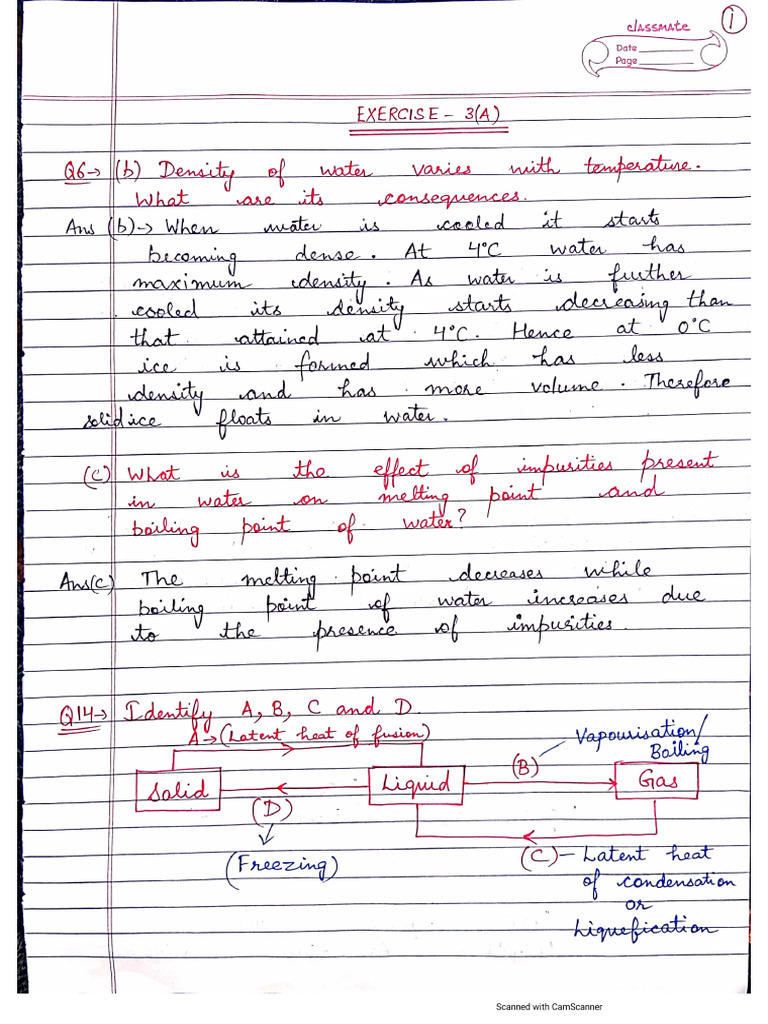 classmate
1
Date
Page
EXERCISE - 3(A)
Q6→ (b) Density of water varies with temperature.
What are its consequences.
Ans (b)→ When water is cooled it starts
becoming dense. At 4°C water has
maximum density. As water is further
cooled its density starts decreasing than
that attained at 4°C. Hence at 0°C
ice is formed which has less
density and has more volume. Therefore
solid ice floats in water.
(C) What is the effect of impurities present
in water on melting point and
boiling point of water?
Ans(c) The melting point decreases while
boiling point of water increases due
to the presence of impurities.
Q14→ Identify A, B, C and D.
A→(Latent heat of fusion)
Vapourisation/
Boiling
(B)
Solid
Liquid
Gas
(D)
(Freezing)
(C)- Latent heat
of condensation
or
Liquefication
Scanned with CamScanner